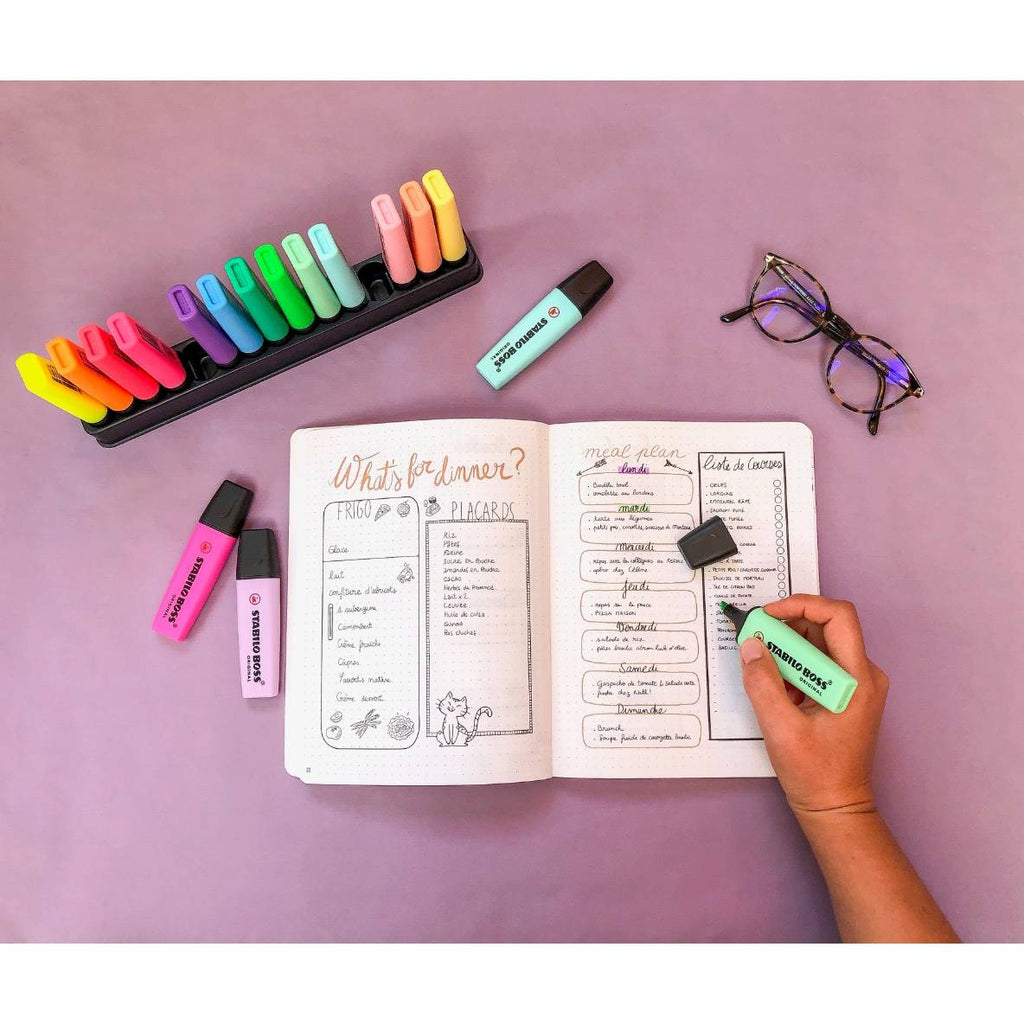 What's for dinner?
FRIGO
Glace
lait
confiture d'abricots
1 aubergine
Camembert
Crème fraîche
Câpres
Yaourts nature
Crème dessert
PLACARDS
Riz
Pâtes
Farine
Sucre en poudre
Amandes en Poudre
Cacao
Herbes de Provence
Lait x 2
Levure
Huile de colza
Quinoa
Pois chiches
meal plan
lundi
. Buddha bowl
. omelette au lardons
mardi
. tarte aux légumes
. petits pois, carottes, saucisse de Morteau
Mercredi
. repas avec les collègues au
. apéro chez Céline
Jeudi
. repas sur le pouce
. PIZZA MAISON
Vendredi
. salade de riz
. pâtes
Samedi
. Gaspacho de tomate & salade verte
. fiesta chez
Dimanche
. Brunch
. Soupe froide de courgette
liste de Courses
. OEUFS
. LARDONS
. EMMENTAL RÂPÉ
. SAUMON FUMÉ
PETITS POIS / CAROTTES
. SAUCISSE DE MORTEAU
STABILO BOSS
ORIGINAL
STABILO BOSS
ORIGINAL
STABILO BOSS
ORIGINAL
STABILO BOSS
ORIGINAL